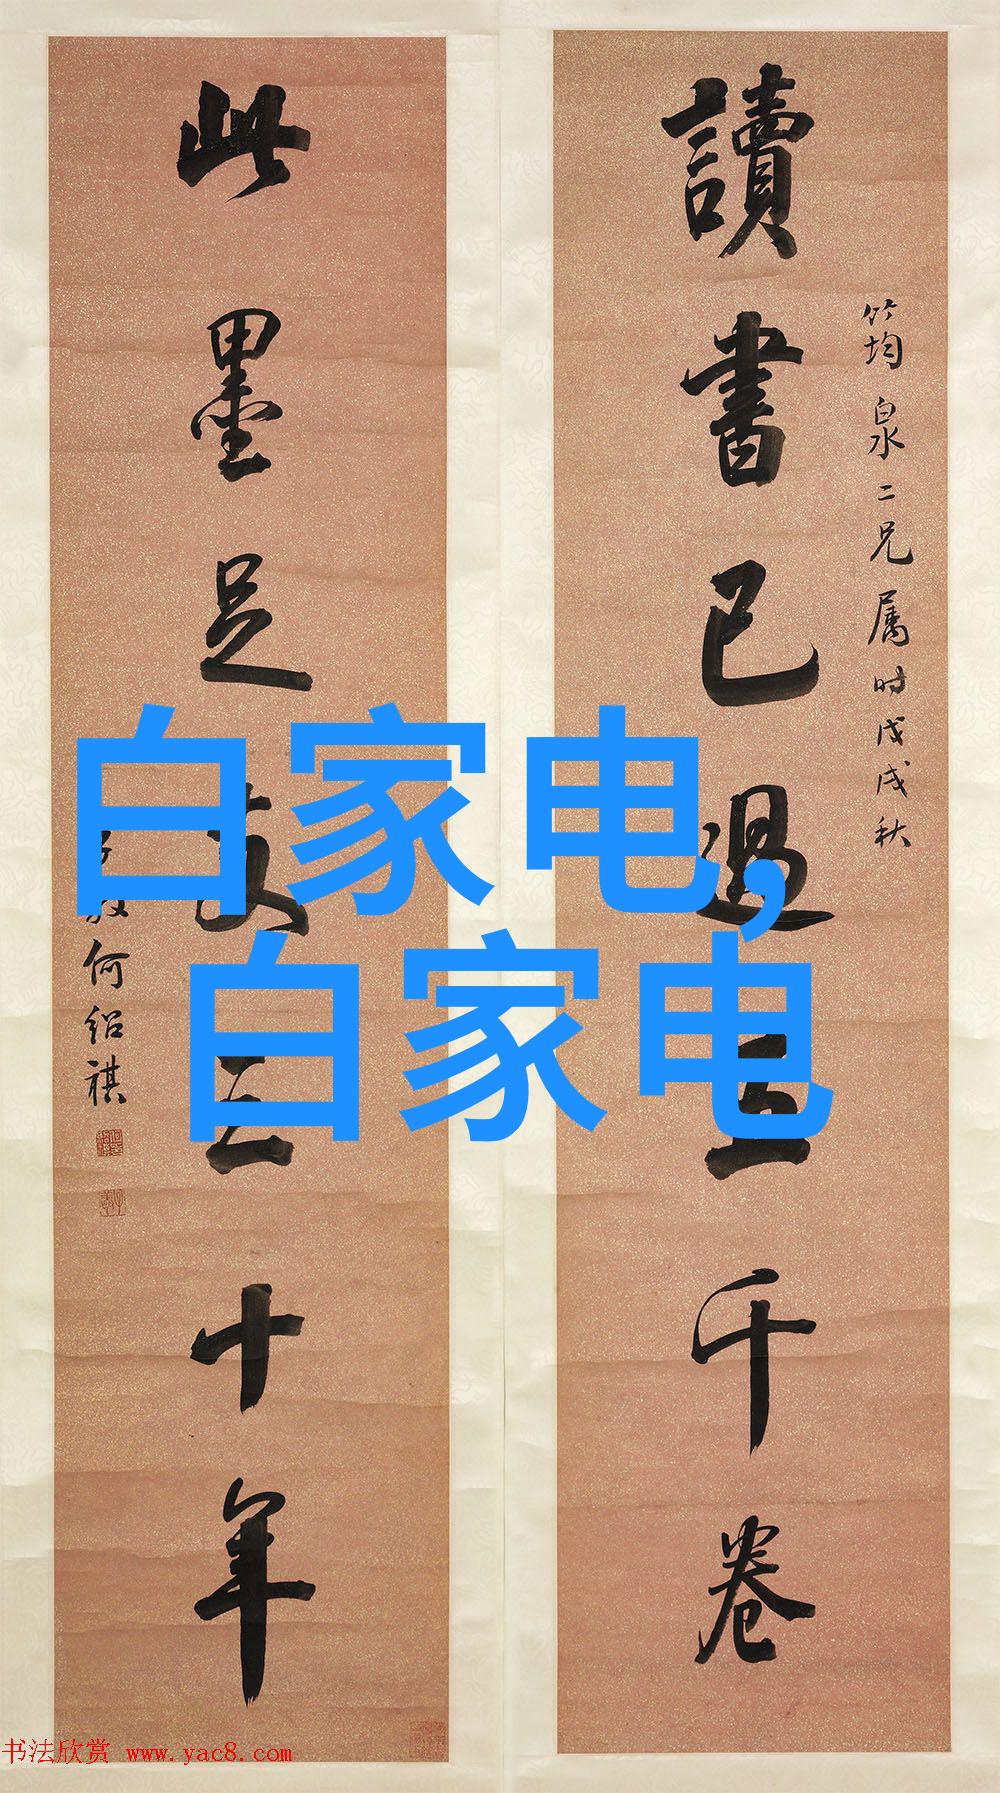 讀書已過五千卷
竹均泉二兄属时戊戌秋
此墨足支三十年
何绍祺
白家电,
白家电
书法欣赏 www.yac8.com